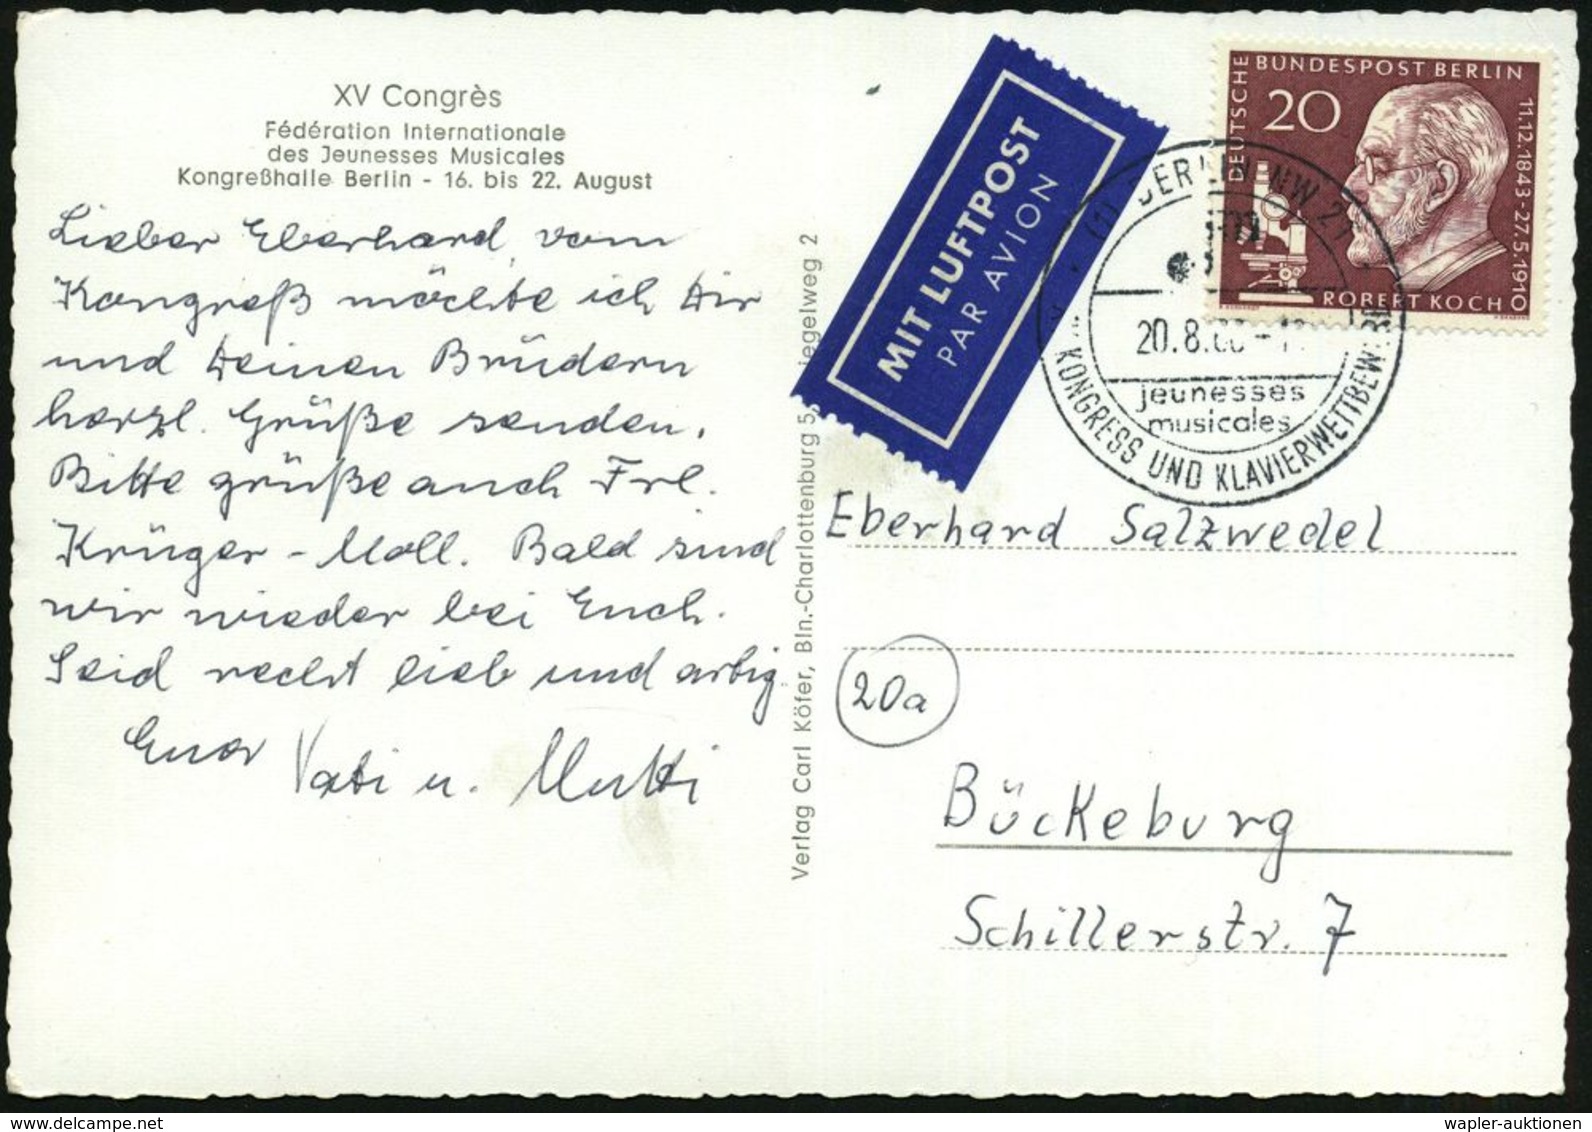 XV Congrès
Fédération Internationale
des Jeunesses Musicales
Kongreßhalle Berlin - 16. bis 22. August
Lieber Eberhard, vom
Kongreß möchte ich Dir
und Deinen Brüdern
herzl. Grüße senden.
Bitte grüße auch Frl.
Krüger - Moll. Bald sind
wir wieder bei Euch.
Seid recht lieb und artig
Euer Vati u. Mutti
Verlag Carl Köfer, Bln.-Charlottenburg 5, iegelweg 2
MIT LUFTPOST
PAR AVION
DEUTSCHE BUNDESPOST BERLIN
20
11.12.1843-27.5.1910
ROBERT KOCH
(1) BERLIN NW 21
20.8.60
jeunesses
musicales
KONGRESS UND KLAVIERWETTBEWERB
Eberhard Salzwedel
20a
Bückeburg
Schillerstr. 7
wapler-auktionen